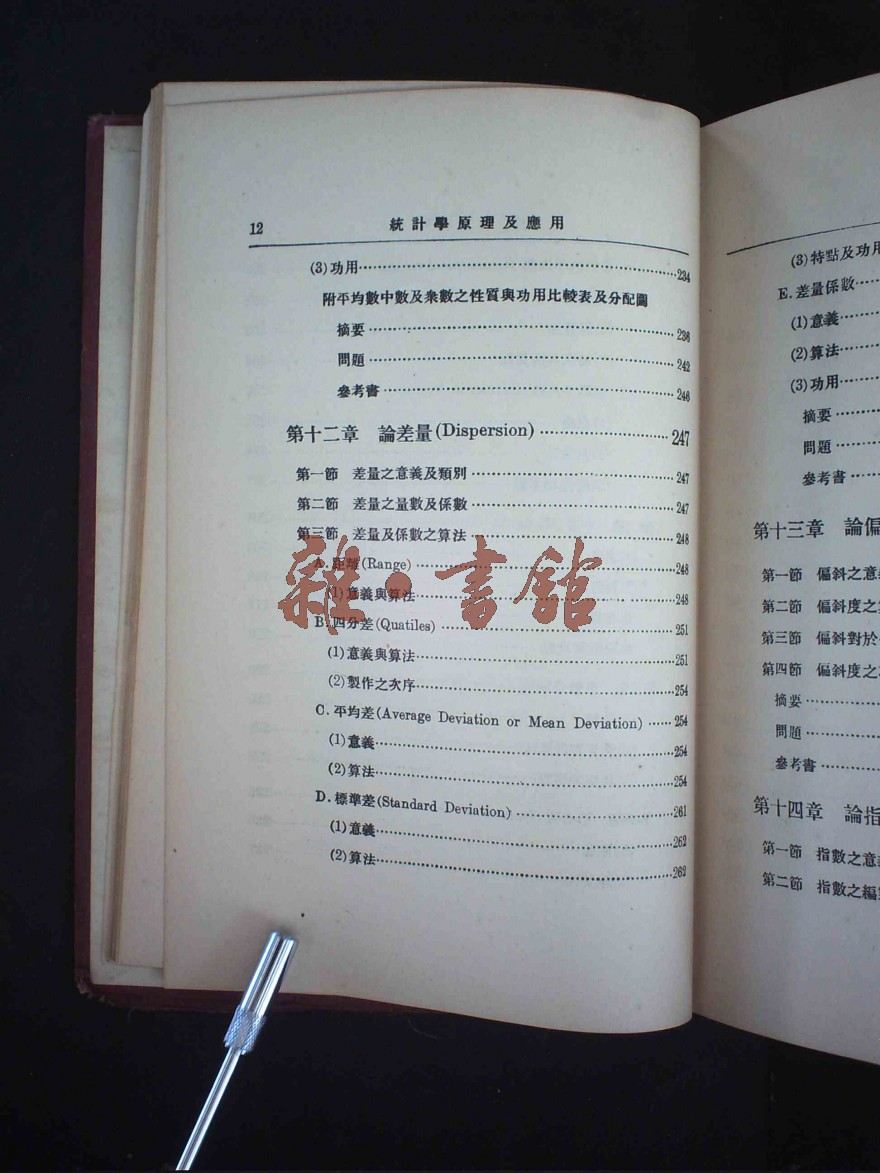 12 統計學原理及應用
(3)功用……234
附平均數中數及衆數之性質與功用比較表及分配圖
摘要……236
問題……242
參考書……246
第十二章 論差量(Dispersion)……247
第一節 差量之意義及類別……247
第二節 差量之量數及係數……247
第三節 差量及係數之算法……248
A.距離(Range)……248
(1)意義與算法……248
B.四分差(Quatiles)……251
(1)意義與算法……251
(2)製作之次序……254
C.平均差(Average Deviation or Mean Deviation)……254
(1)意義……254
(2)算法……254
D.標準差(Standard Deviation)……261
(1)意義……262
(2)算法……262
雜·書館
(3)特點及功用
E.差量係數……
(1)意義……
(2)算法……
(3)功用……
摘要……
問題……
參考書……
第十三章 論偏
第一節 偏斜之意
第二節 偏斜度之
第三節 偏斜對於
第四節 偏斜度之
摘要……
問題……
參考書……
第十四章 論指
第一節 指數之意
第二節 指數之編